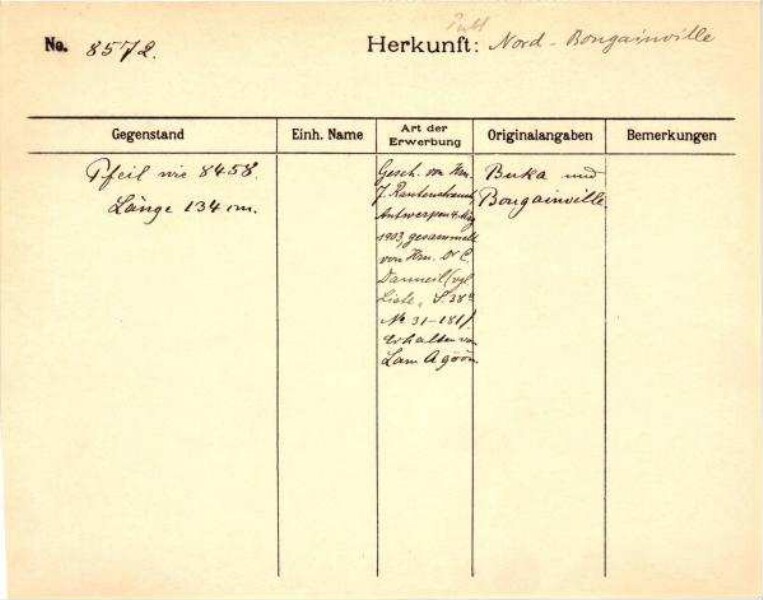 No. 8572. Herkunft: Nord-Bougainville
Gegenstand Einh. Name Art der Erwerbung Originalangaben Bemerkungen
Pfeil wie 8458.
Länge 134 cm.
Gesch. von Hrn.
J. Rautenstrauch,
Antwerpen
1903, gesammelt
von Hrn. Dr C.
Danneil (vgl.
Liste, S. 38
No 31-181).
Erhalten von
Lam
Buka und
Bougainville.